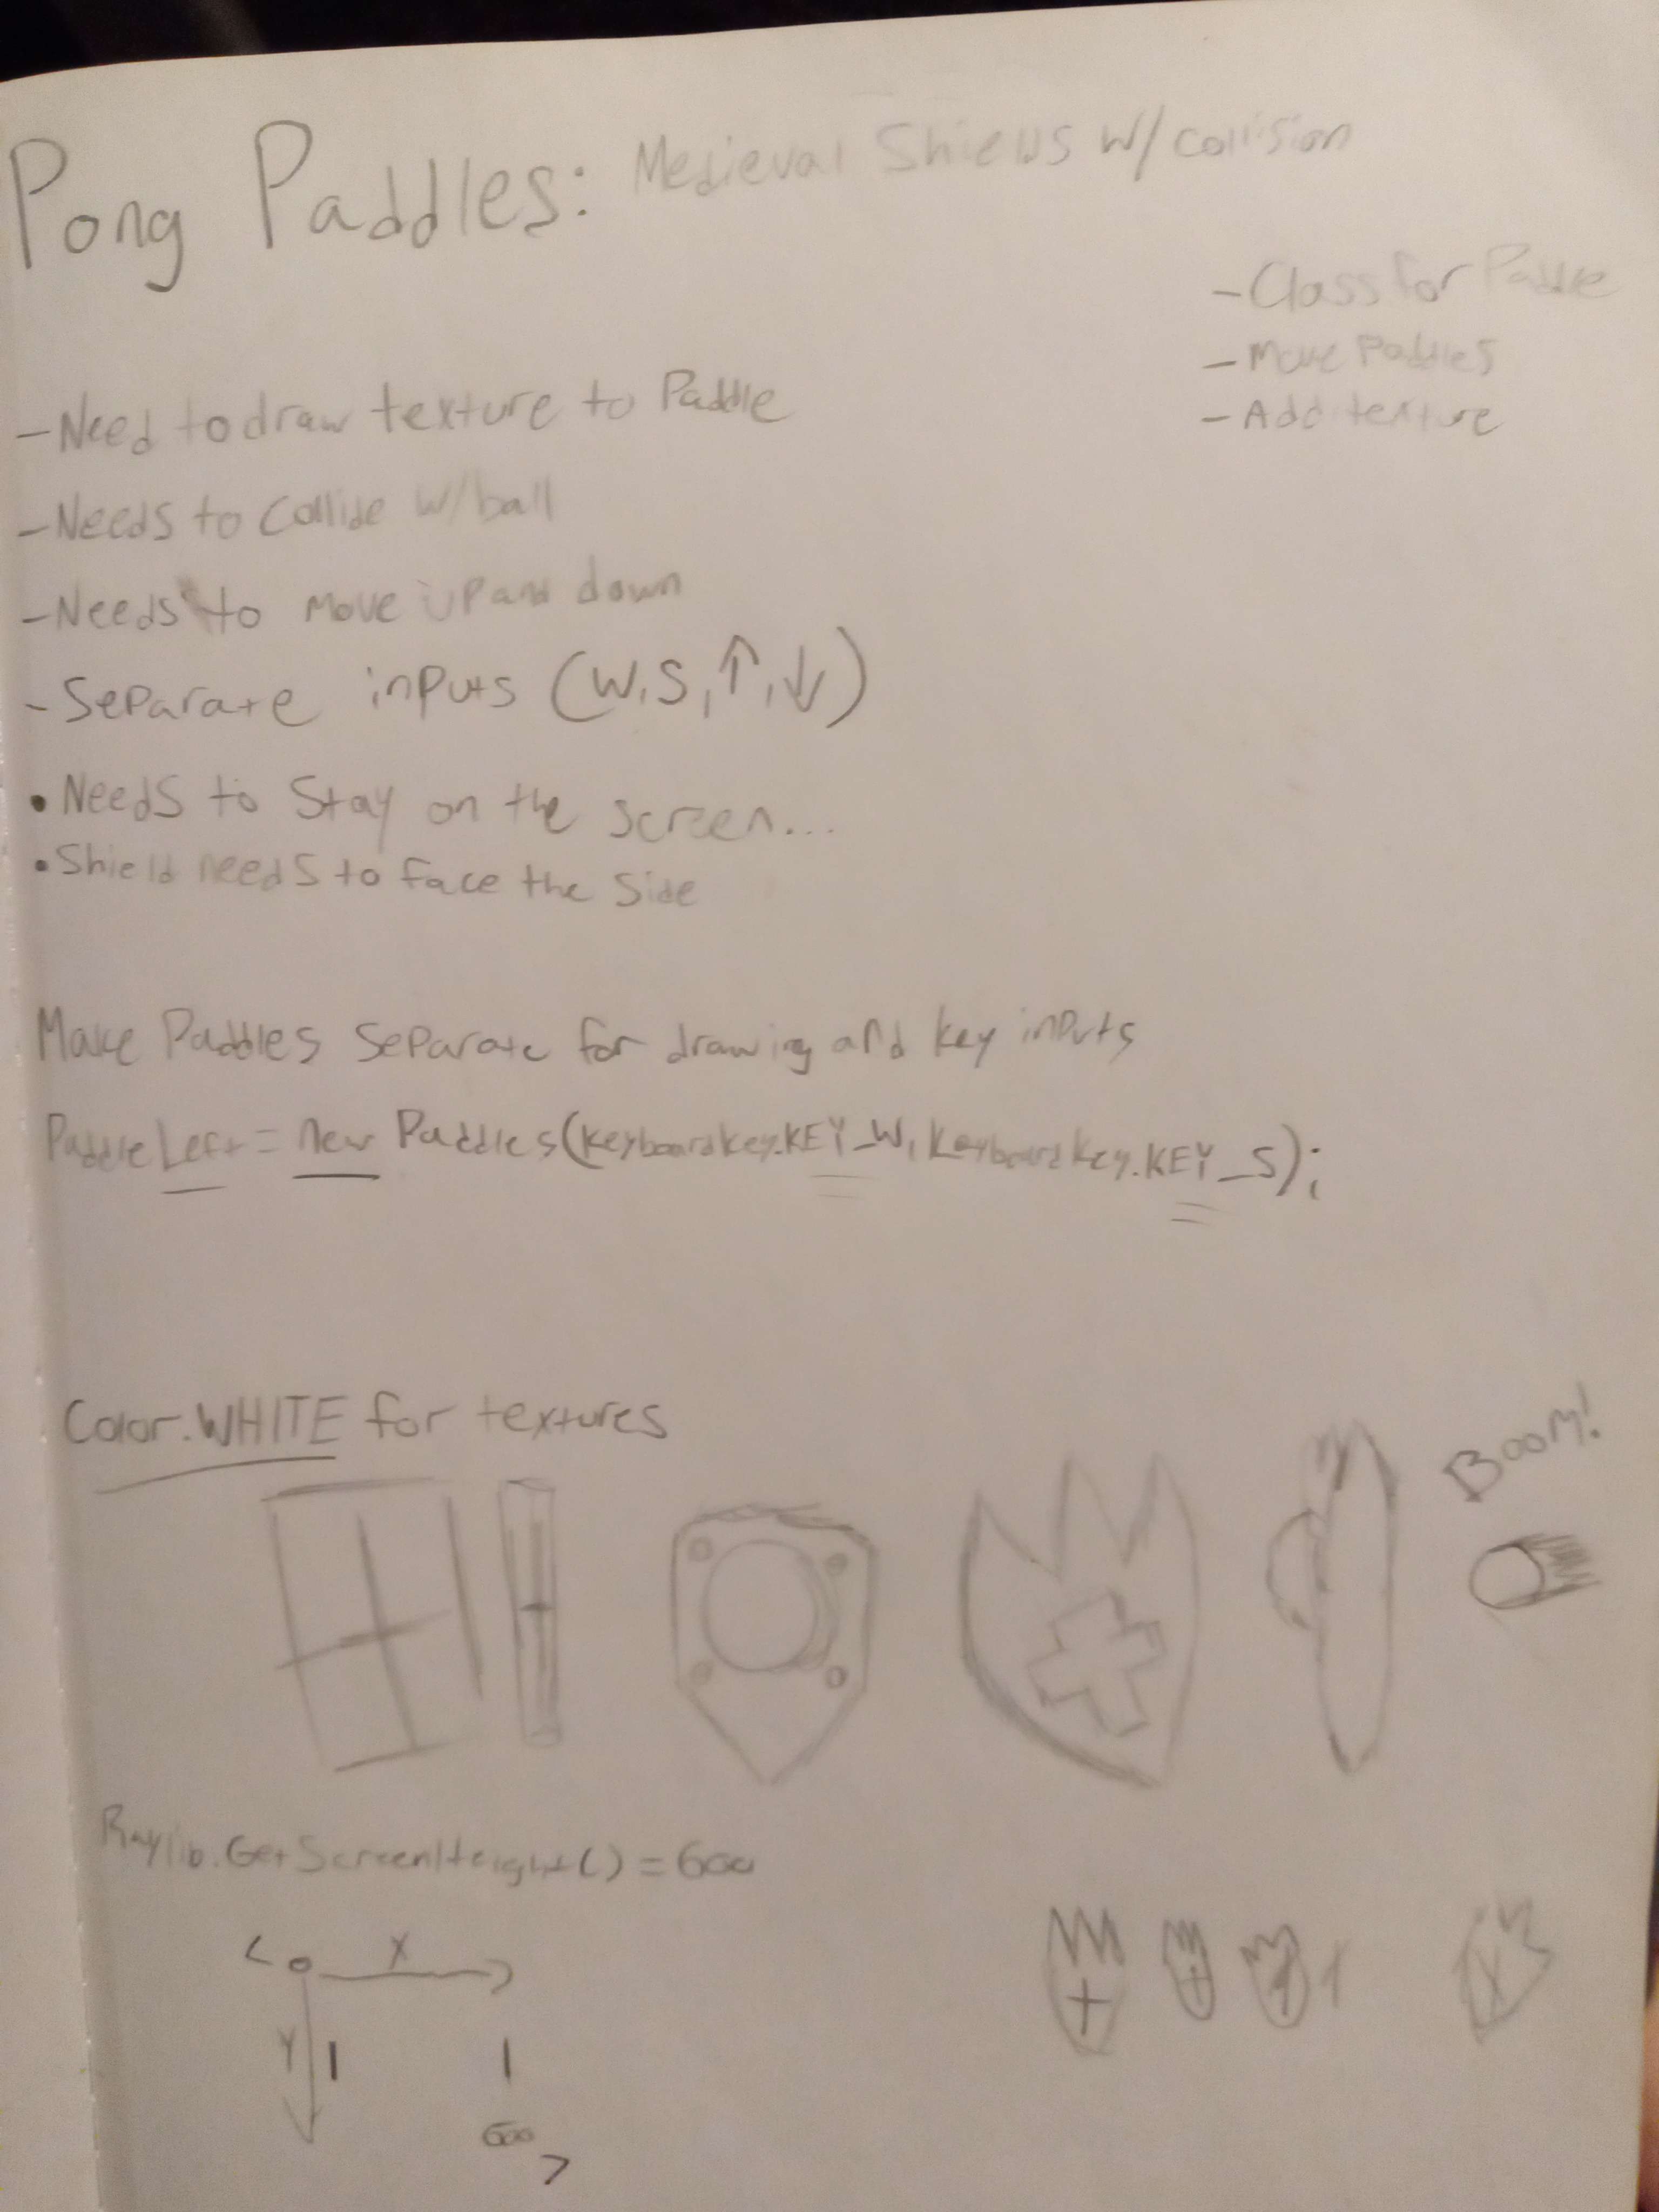 Pong Paddles: Medieval Shields w/ collision
- Class for Paddle
- Move Paddles
- Add texture
- Need to draw texture to Paddle
- Needs to collide w/ball
- Needs to move up and down
- Separate inputs (W,S,↑,↓)
• Needs to stay on the screen...
• Shield needs to face the side
Make Paddles separate for drawing and key inputs
PaddleLeft = new Paddles(KeyboardKey.KEY_W, KeyboardKey.KEY_S);
Color.WHITE for textures
BOOM!
Raylib.GetScreenHeight() = 600
< o X >
Y
600
>